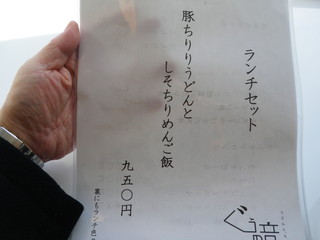 ランチセット
豚ちりりうどんと
しそちりめんご飯
九五〇円
裏にもランチ